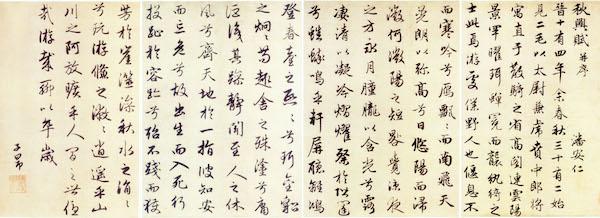 秋興賦并序
潘安仁
晉十有四年余春秋三十有二始
見二毛以太尉掾兼虎賁中郎將
寓直于散騎之省高閣連雲陽
景罕曜珥蟬冕而襲紈綺之
士此焉游處僕野人也偃息不
而寒吟兮鴈飄飄而南飛天
晃朗以彌高兮日悠陽而浸
微何微陽之短晷覺涼夜
之方永月朣朧以含光兮露
凄清以凝冷熠燿粲於階闥
兮蟋蟀鳴乎軒屏聽離鴻
登春臺之熙熙兮珥金貂
之炯炯苟趣舍之殊塗兮庸
詎識其躁靜聞至人之休
風兮齊天地於一指彼知安
而忘危兮故出生而入死行
投趾於容跡兮殆不踐而獲
芳於崖澨澡秋水之涓涓
兮玩游鯈之潎潎逍遙乎山
川之阿放曠乎人間之世優
哉游哉聊以卒歲
子昂